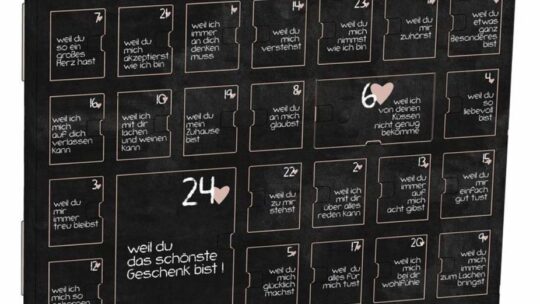 7
weil du
so ein
großes
Herz hast
21
weil du
mich
akzeptierst
wie ich bin
weil ich
immer
an dich
denken
muss
14
weil du
mich
verstehst
23
weil du
mich
nimmst
wie ich bin
weil du
mir
zuhörst
weil du
etwas
ganz
Besonderes
bist
16
weil ich
mich
auf dich
verlassen
kann
10
weil ich
mit dir
lachen
und weinen
kann
19
weil du
mein
Zuhause
bist
8
weil du
an mich
glaubst
6
weil ich
von deinen
Küssen
nicht genug
bekomme
4
weil du
so
liebevoll
bist
3
weil du
mir
immer
treu bleibst
24
weil du
das schönste
Geschenk bist !
22
weil du
zu mir
stehst
2
weil ich
mit dir
über alles
reden kann
13
weil du
immer
auf mich
acht gibst
15
weil du
mir
einfach
gut tust
12
weil ich
mich so
5
weil du
mich
glücklich
machst
17
weil du
alles für
mich tust
20
weil ich
mich
bei dir
wohlfühle
9
weil du
mich
immer
zum Lachen
bringst